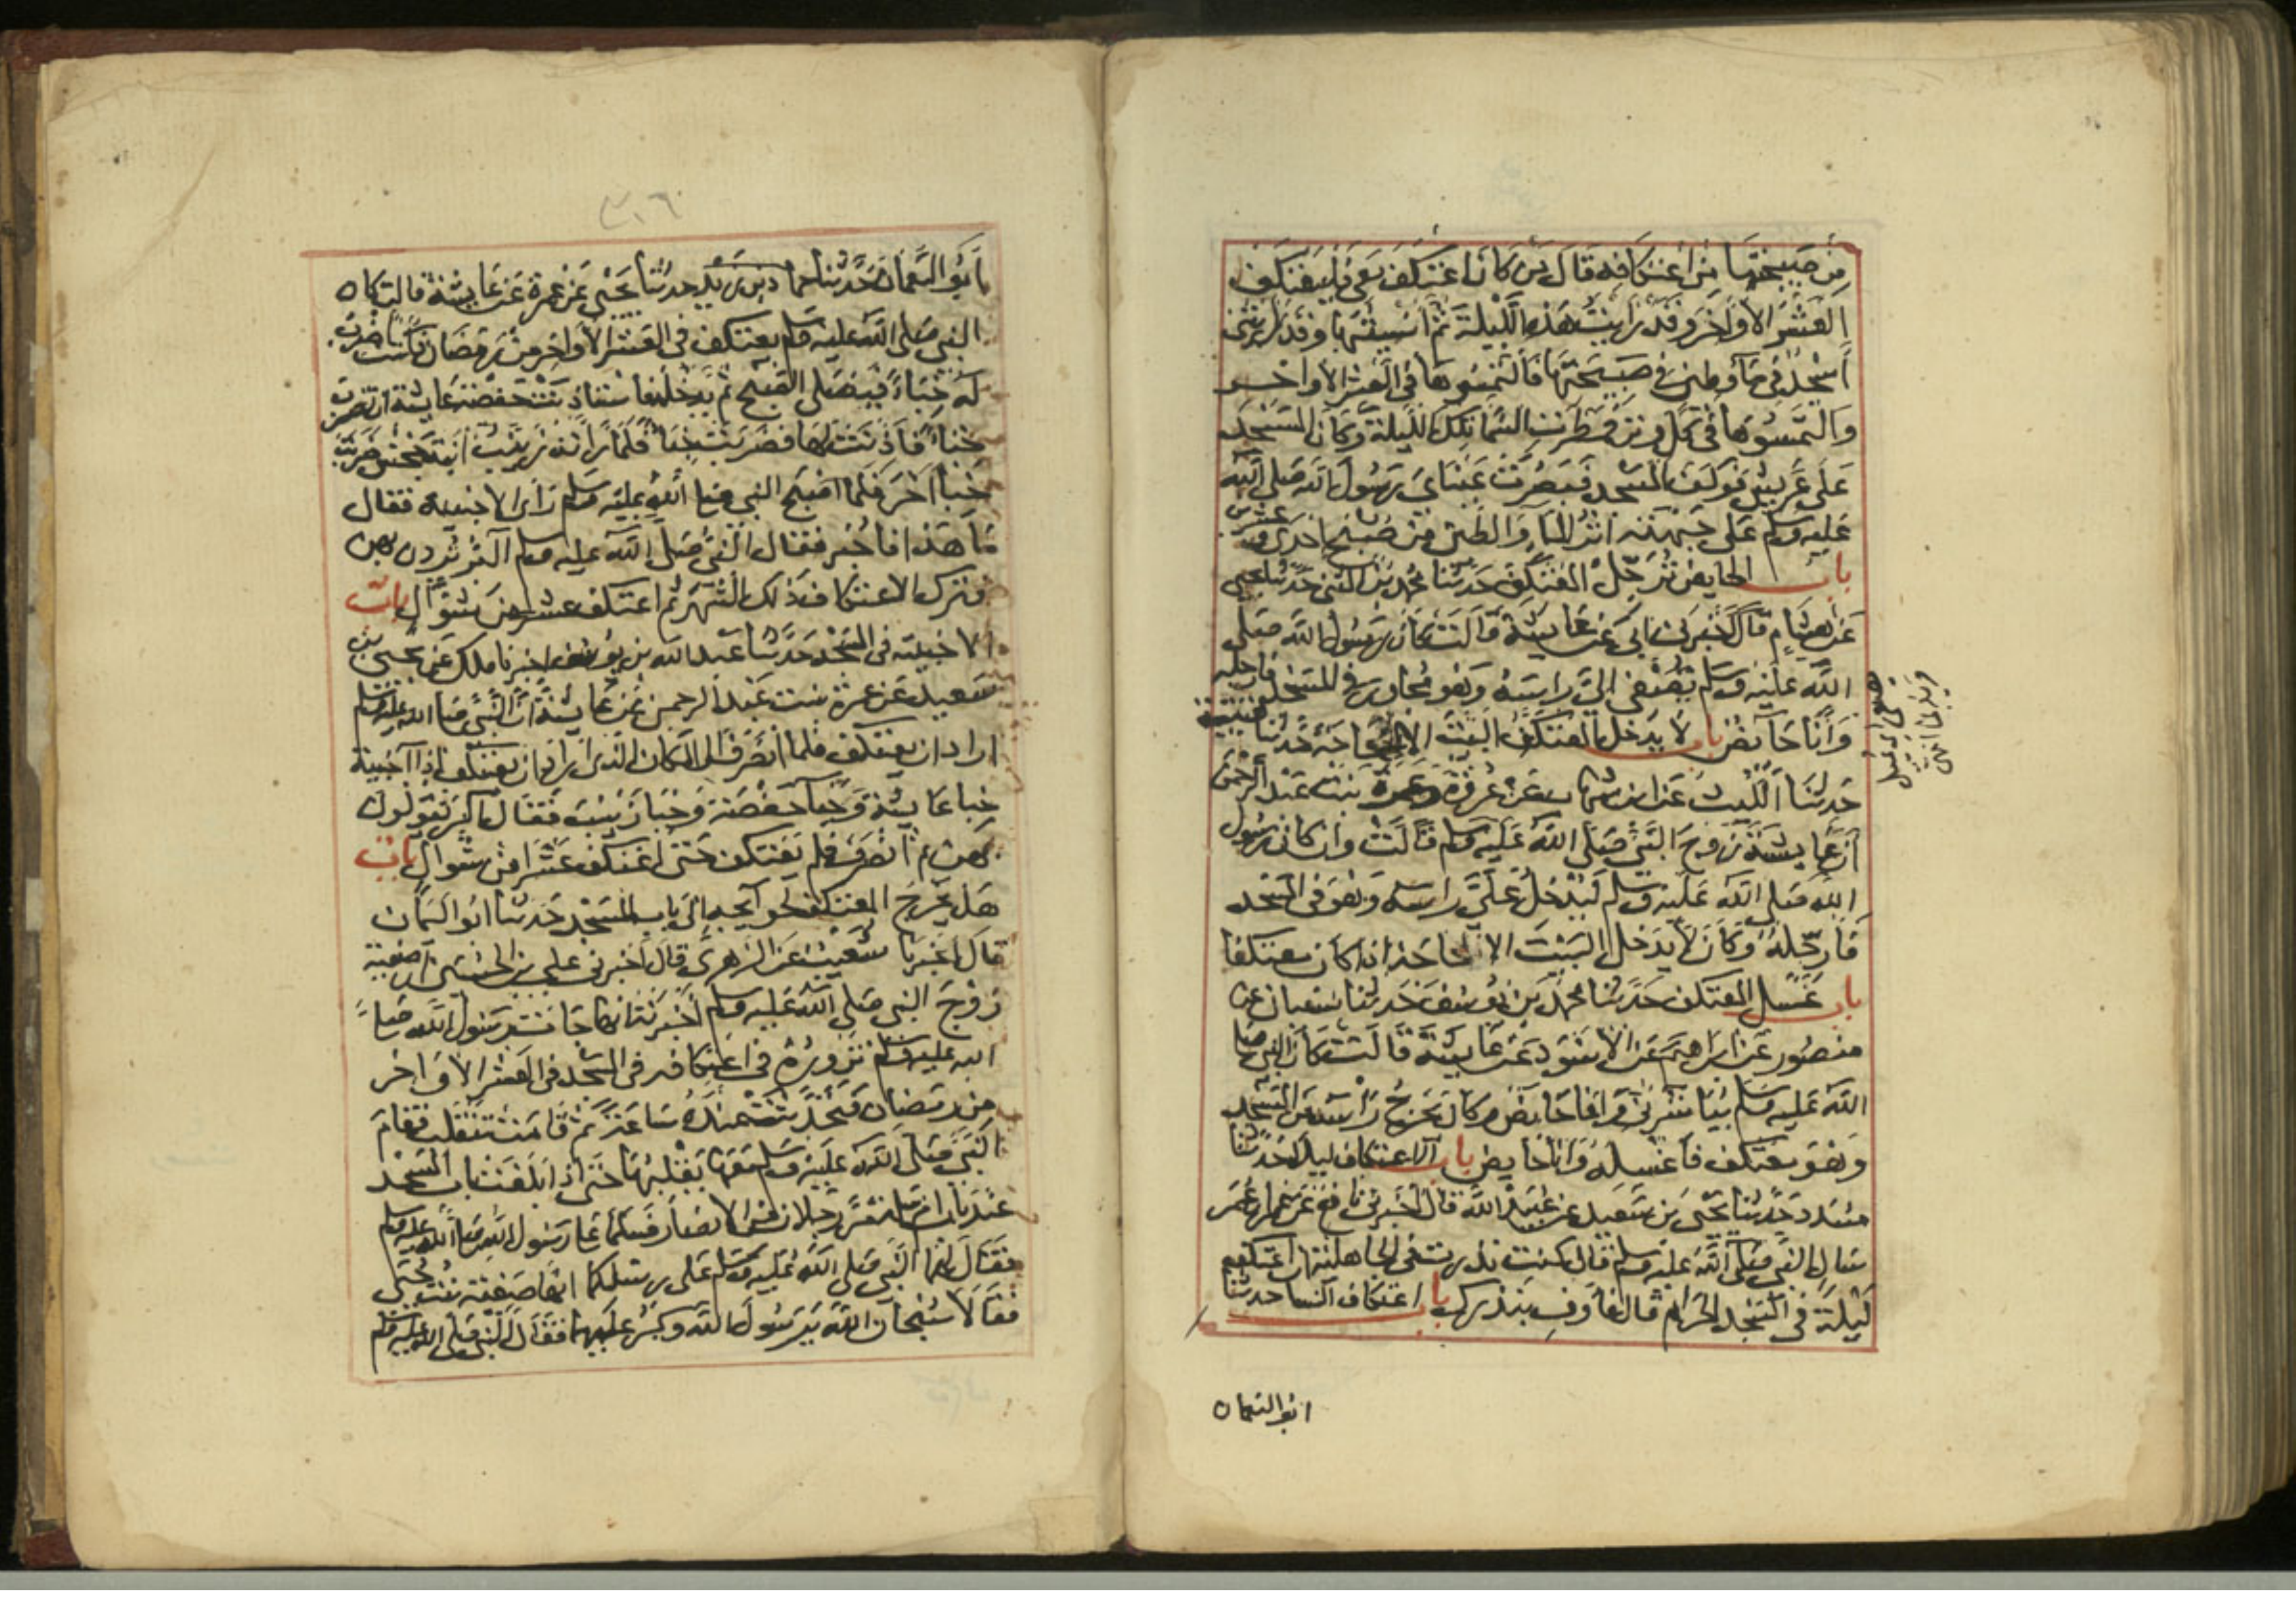 من صبيحتها من اعتكافه قال من كان اعتكف معي فليعتكف
العشر الاواخر وقد رايت هذه الليلة ثم انسيتها وقد رايتني
اسجد في ماء وطين من صبيحتها فالتمسوها في العشر الاواخر
والتمسوها في كل وتر فمطرت السماء تلك الليلة وكان المسجد
على عريش فوكف المسجد فبصرت عيناي رسول الله صلى الله
عليه وسلم على جبهته اثر الماء والطين من صبح احدى وعشرين
باب الحايض ترجل المعتكف حدثنا محمد بن المثنى حدثنا يحيى
عن هشام قال اخبرني ابي عن عايشة قالت كان رسول الله صلى
الله عليه وسلم يصغي الي راسه وهو مجاور في المسجد فارجله
وانا حايض باب لا يدخل المعتكف البيت الا لحاجة حدثنا قتيبة
حدثنا الليث عن ابن شهاب عن عروة وعمرة بنت عبد الرحمن
ان عايشة زوج النبي صلى الله عليه وسلم قالت وان كان رسول
الله صلى الله عليه وسلم ليدخل علي راسه وهو في المسجد
فارجله وكان لا يدخل البيت الا لحاجة اذا كان معتكفا
باب غسل المعتكف حدثنا محمد بن يوسف حدثنا سفيان عن
منصور عن ابراهيم عن الاسود عن عايشة قالت كان النبي صلى
الله عليه وسلم يباشرني وانا حايض وكان يخرج راسه من المسجد
وهو معتكف فاغسله وانا حايض باب الاعتكاف ليلا حدثنا
مسدد حدثنا يحيى بن سعيد عن عبيد الله قال اخبرني نافع عن عمر
سال النبي صلى الله عليه وسلم قال كنت نذرت في الجاهلية ان اعتكف
ليلة في المسجد الحرام قال فاوف بنذرك باب اعتكاف النسا حدثنا
ابو النعمان
٣١٦
ابو النعمان حدثنا حماد بن زيد حدثنا يحيى عن عمرة عن عايشة قالت كان
النبي صلى الله عليه وسلم يعتكف في العشر الاواخر من رمضان فكنت اضرب
له خباء فيصلي الصبح ثم يدخله فاستاذنت حفصة عايشة ان تضرب
خباء فاذنت لها فضربت خباء فلما راته زينب ابنة جحش ضربت
خبا اخر فلما اصبح النبي صلى الله عليه وسلم راى الاخبية فقال
ما هذا فاخبر فقال النبي صلى الله عليه وسلم آلبر تردن بهن
فترك الاعتكاف ذلك الشهر ثم اعتكف عشرا من شوال باب
الاخبية في المسجد حدثنا عبد الله بن يوسف اخبرنا ملك عن يحيى بن
سعيد عن عمرة بنت عبد الرحمن عن عايشة ان النبي صلى الله عليه وسلم
اراد ان يعتكف فلما انصرف الى المكان الذي اراد ان يعتكف اذا اخبية
خبا عايشة وخبا حفصة وخبا زينب فقال آلبر تقولون
بهن ثم انصرف فلم يعتكف حتى اعتكف عشرا من شوال باب
هل يخرج المعتكف لحوايجه الى باب المسجد حدثنا ابو اليمان
قال اخبرنا شعيب عن الزهري قال اخبرني علي بن الحسين ان صفية
زوج النبي صلى الله عليه وسلم اخبرته انها جات رسول الله صلى
الله عليه وسلم تزوره في اعتكافه في المسجد في العشر الاواخر
من رمضان فتحدثت عنده ساعة ثم قامت تنقلب فقام
النبي صلى الله عليه وسلم معها يقلبها حتى اذا بلغت باب المسجد
عند باب ام سلمة مر رجلان من الانصار فسلما على رسول الله صلى الله عليه وسلم
فقال لهما النبي صلى الله عليه وسلم على رسلكما انها صفية بنت حيي
فقالا سبحان الله يرسول الله وكبر عليهما فقال النبي صلى الله عليه وسلم